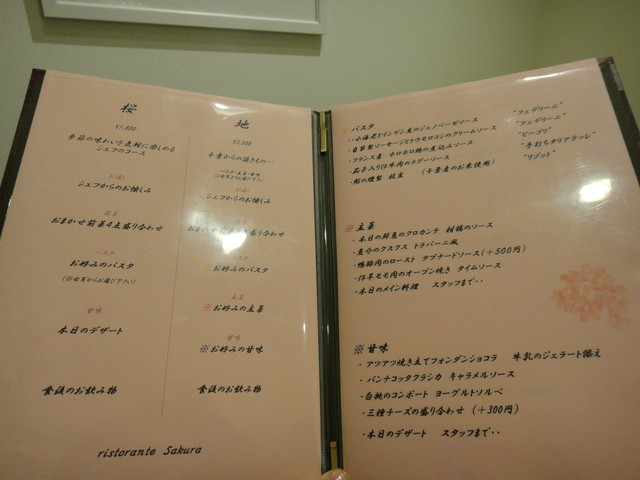 桜
¥1,800
季節の味わい千産材に楽しめる
シェフのコース
お通し
シェフからのお愉しみ
前菜
おまかせ前菜4点盛り合わせ
パスタ
お好みのパスタ
(※右頁からお選び下さい)
甘味
本日のデザート
食後のお飲み物
ristorante Sakura
地
¥2,500
千葉からの頂きもの…
パスタ・主菜・甘味
は右頁よりお選び下さい
お通し
シェフからのお愉しみ
お好みのパスタ
主菜
※お好みの主菜
甘味
※お好みの甘味
食後のお飲み物
パスタ
・小海老とインゲン豆のジェノベーゼソース "フェデリーニ"
・自家製ソーセージとトウモロコシのクリームソース "フェデリーニ"
・フランス産 ホロホロ鶏の煮込みソース "ビーゴリ"
・茄子入り仔牛肉のラグーソース "手打ちタリアテッレ"
・鮎の燻製 枝豆 (千葉産のお米使用) "リゾット"
※ 主菜
・本日の鮮魚のクロカンテ 柑橘のソース
・魚介のクスクス トラパーニ風
・鴨胸肉のロースト タプナードソース(+500円)
・仔羊モモ肉のオーブン焼き タイムソース
・本日のメイン料理 スタッフまで・・
※ 甘味
・アツアツ焼き立てフォンダンショコラ 牛乳のジェラート添え
・パンナコッタクラシカ キャラメルソース
・白桃のコンポート ヨーグルトソルベ
・三種チーズの盛り合わせ (+300円)
・本日のデザート スタッフまで・・